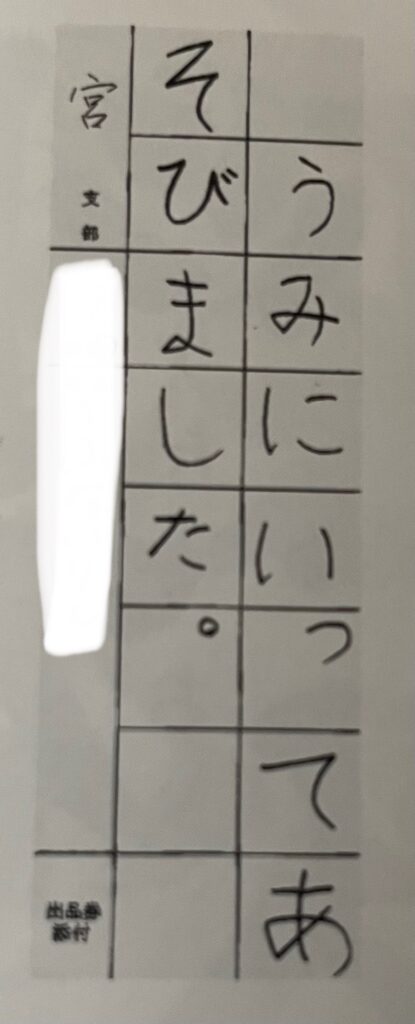 うみにいってあ
そびました。
宮支部
出品券
添付